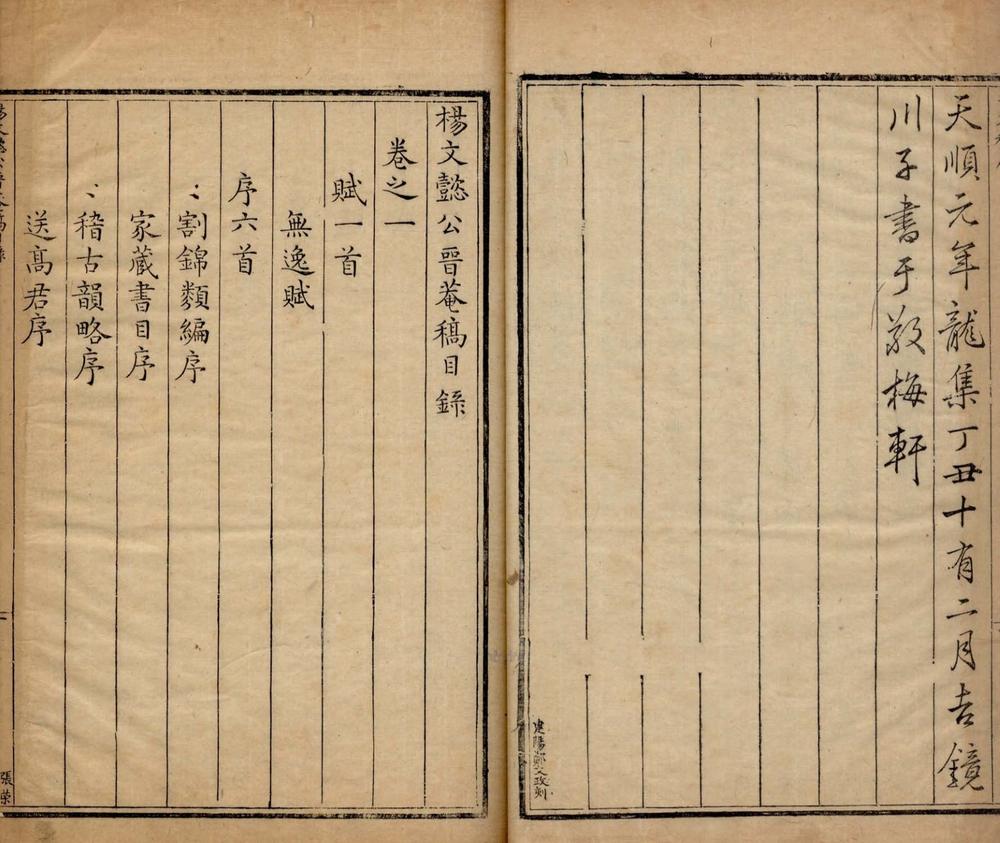 天順元年龍集丁丑十有二月吉鏡
川子書于敬梅軒
建陽鄭文政刻
楊文懿公晉菴稿目錄
卷之一
賦一首
無逸賦
序六首
割錦類編序
家藏書目序
稽古韻略序
送髙君序
張荣